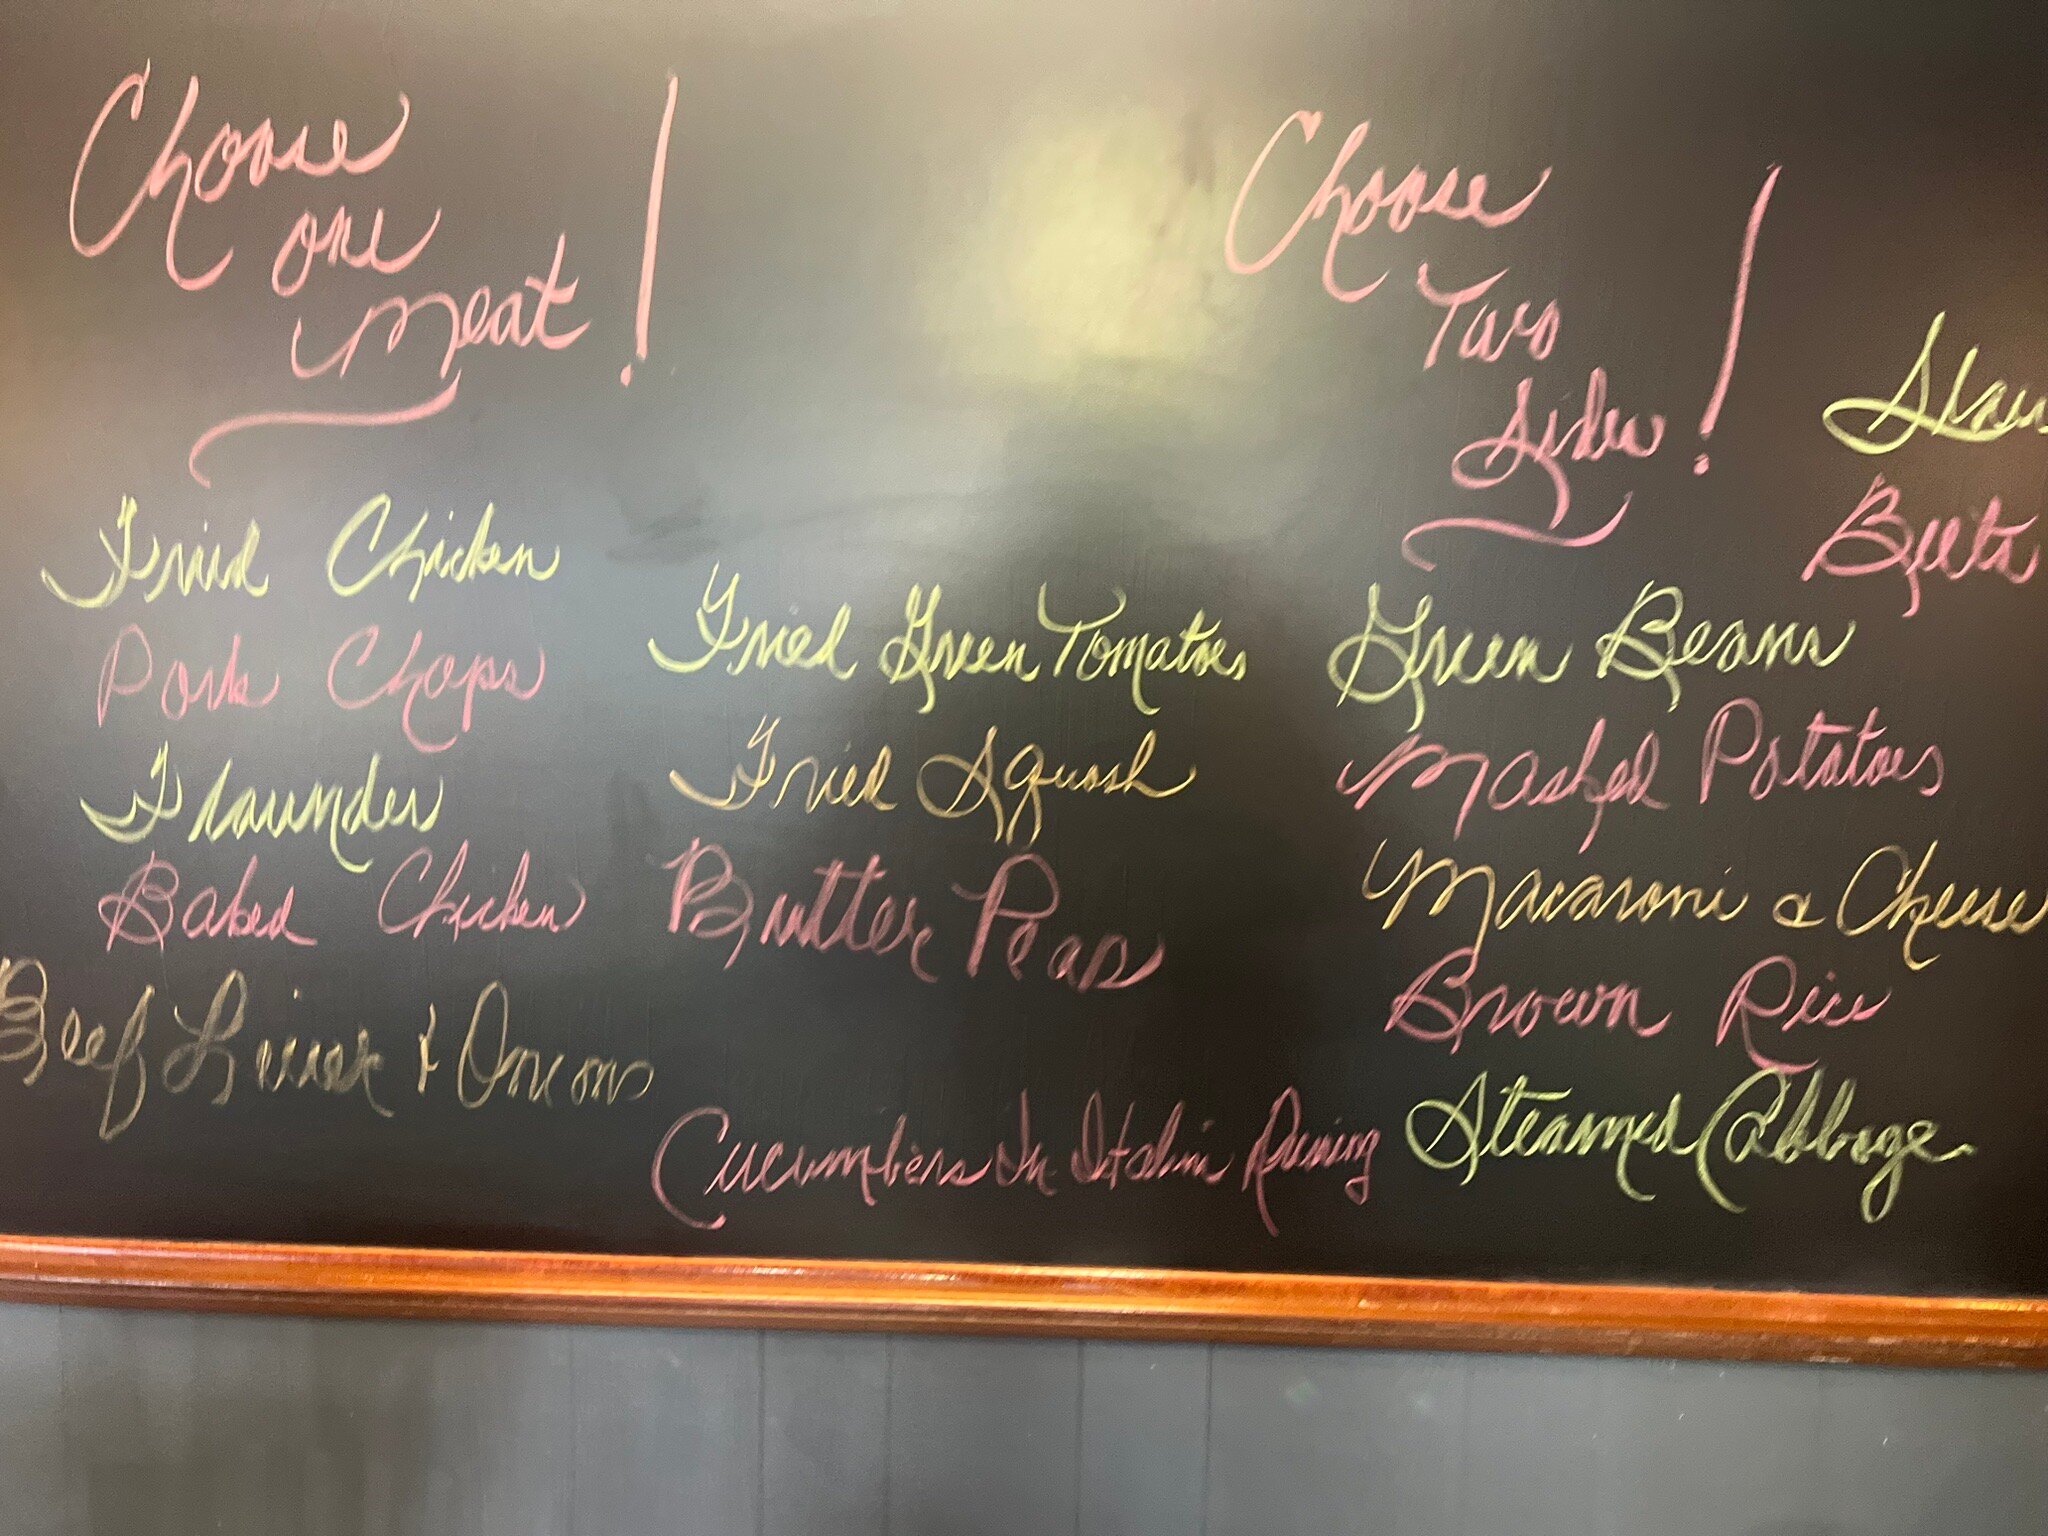 Choose
one
meat!
Fried Chicken
Pork Chops
Flounder
Baked Chicken
Beef Liver & Onions
Fried Green Tomatoes
Fried Squash
Butter Peas
Cucumbers In Italian
Choose
Two
Sides!
Green Beans
Mashed Potatoes
Macaroni & Cheese
Brown Rice
Steamed Cabbage
Slaw
Beets